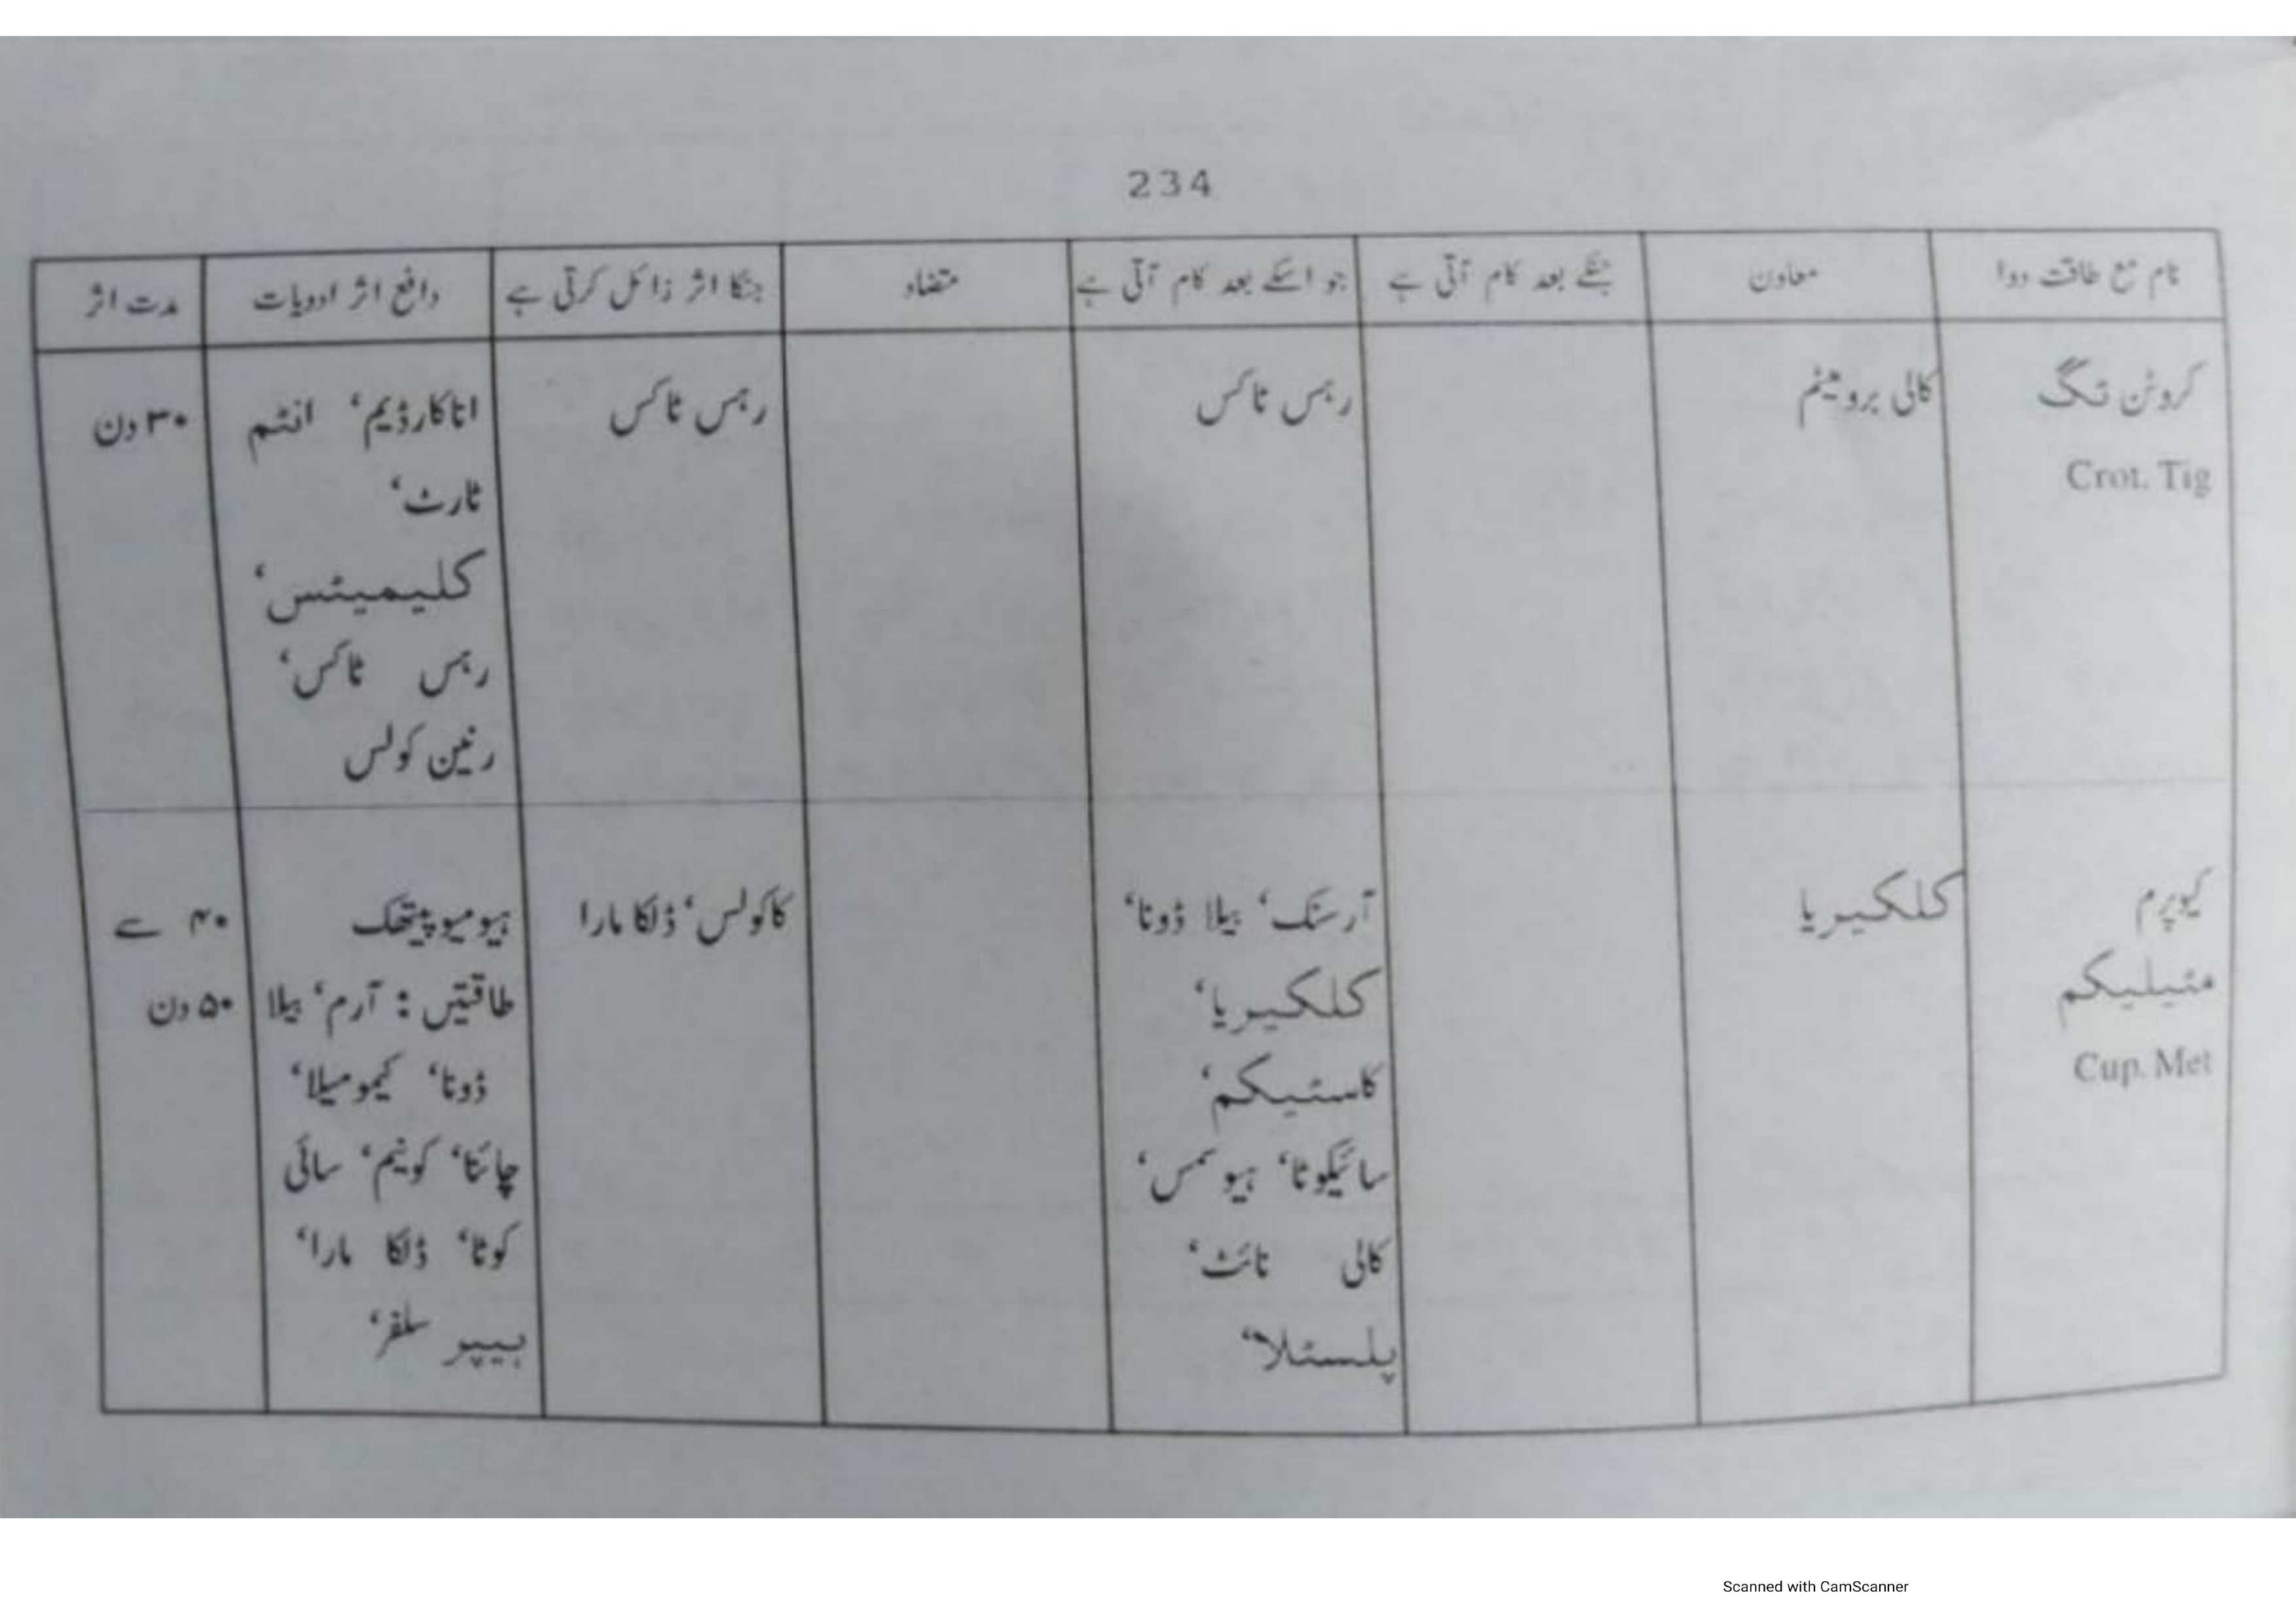 234
نام مع طاقت دوا
معاون
جنکے بعد کام آتی ہے
جو اسکے بعد کام آتی ہے
متضاد
جنکا اثر زائل کرتی ہے
دافع اثر ادویات
مدت اثر
کروٹن ٹگ
Crot. Tig
کالی برومیٹم
رہس ٹاکس
رہس ٹاکس
اناکارڈیم، انٹم
ٹارٹ،
کلیمیٹس،
رہس ٹاکس،
رنین کولس
۳۰ دن
کیوپرم
مٹیلیکم
Cup. Met
کلکیریا
آرسنک، بیلا ڈونا،
کلکیریا،
کاسٹیکم،
سائیکوٹا، ہیو سمس،
کالی نائٹ،
پلسٹلا،
کاکولس، ڈلکا مارا
ہیومیوپیتھک
طاقتیں : آرم، بیلا
ڈونا، کیمومیلا،
چائنا، کونیم، سائی
کوٹا، ڈلکا مارا،
ہیپر سلفر،
۴۰ سے
۵۰ دن
Scanned with CamScanner